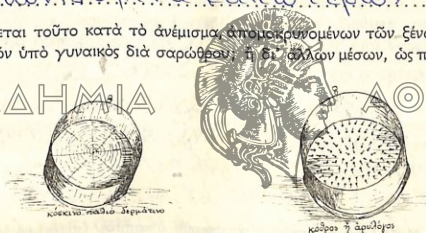 εται τοῦτο κατὰ τὸ ἀνέμισμα, ἀπομακρυνομένων τῶν ξέν
όν ὑπὸ γυναικὸς διὰ σαρώθρου; ἢ δι' ἄλλων μέσων, ὡς π
ΔΗΜΙΑ ΑΘ
α β
κόσκινο παλιὸ δερμάτινο
κόθρος ἢ ἀρυλόγος